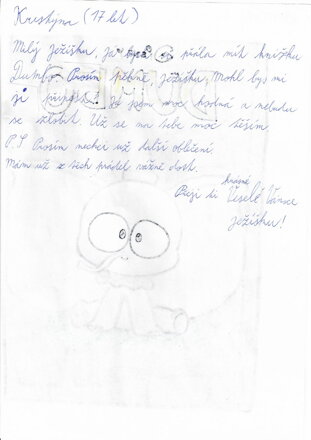 Kristýna (17 let)
Milý Ježíšku, já bych si přála mít knížku
Dumbo. Prosím pěkně, Ježíšku, Mohl bys mi
ji přinést? Já jsem moc hodná a nebudu
se zlobit. Už se na tebe moc těším.
P.S Prosím nechci už další oblečení.
Mám už z těch prádel vážně dost.
krásné
Přeji ti Veselé Vánoce
Ježíšku!